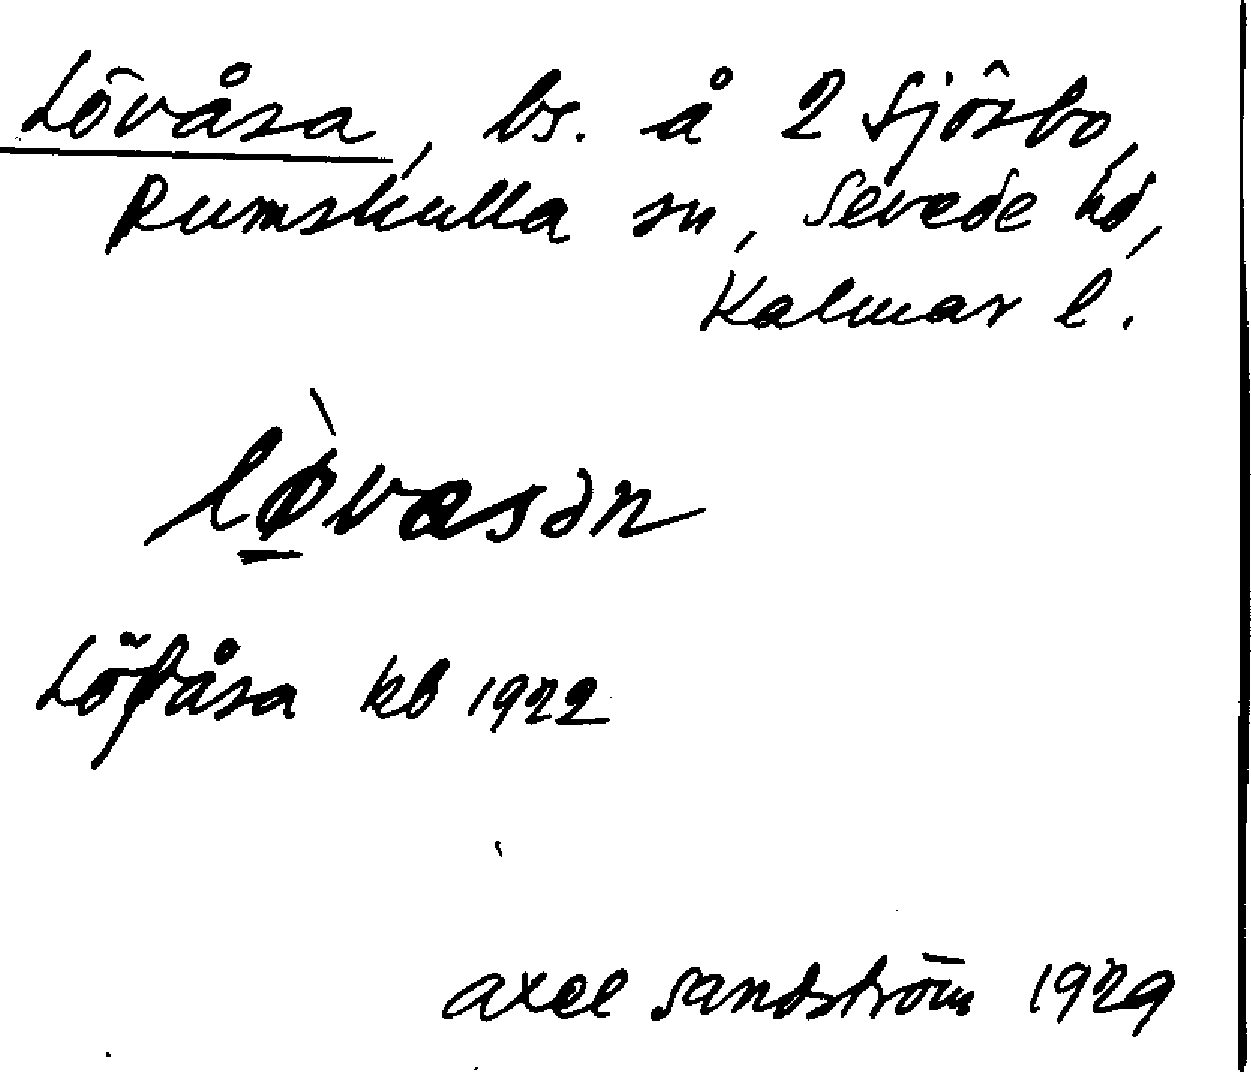 Lövåsa, bs. å 2 Sjösbo,
Rumskulla sn, Sevede hd,
Kalmar l.
lø̠̀vasən
Löfåsa kb 1922
Axel Sandström 1929